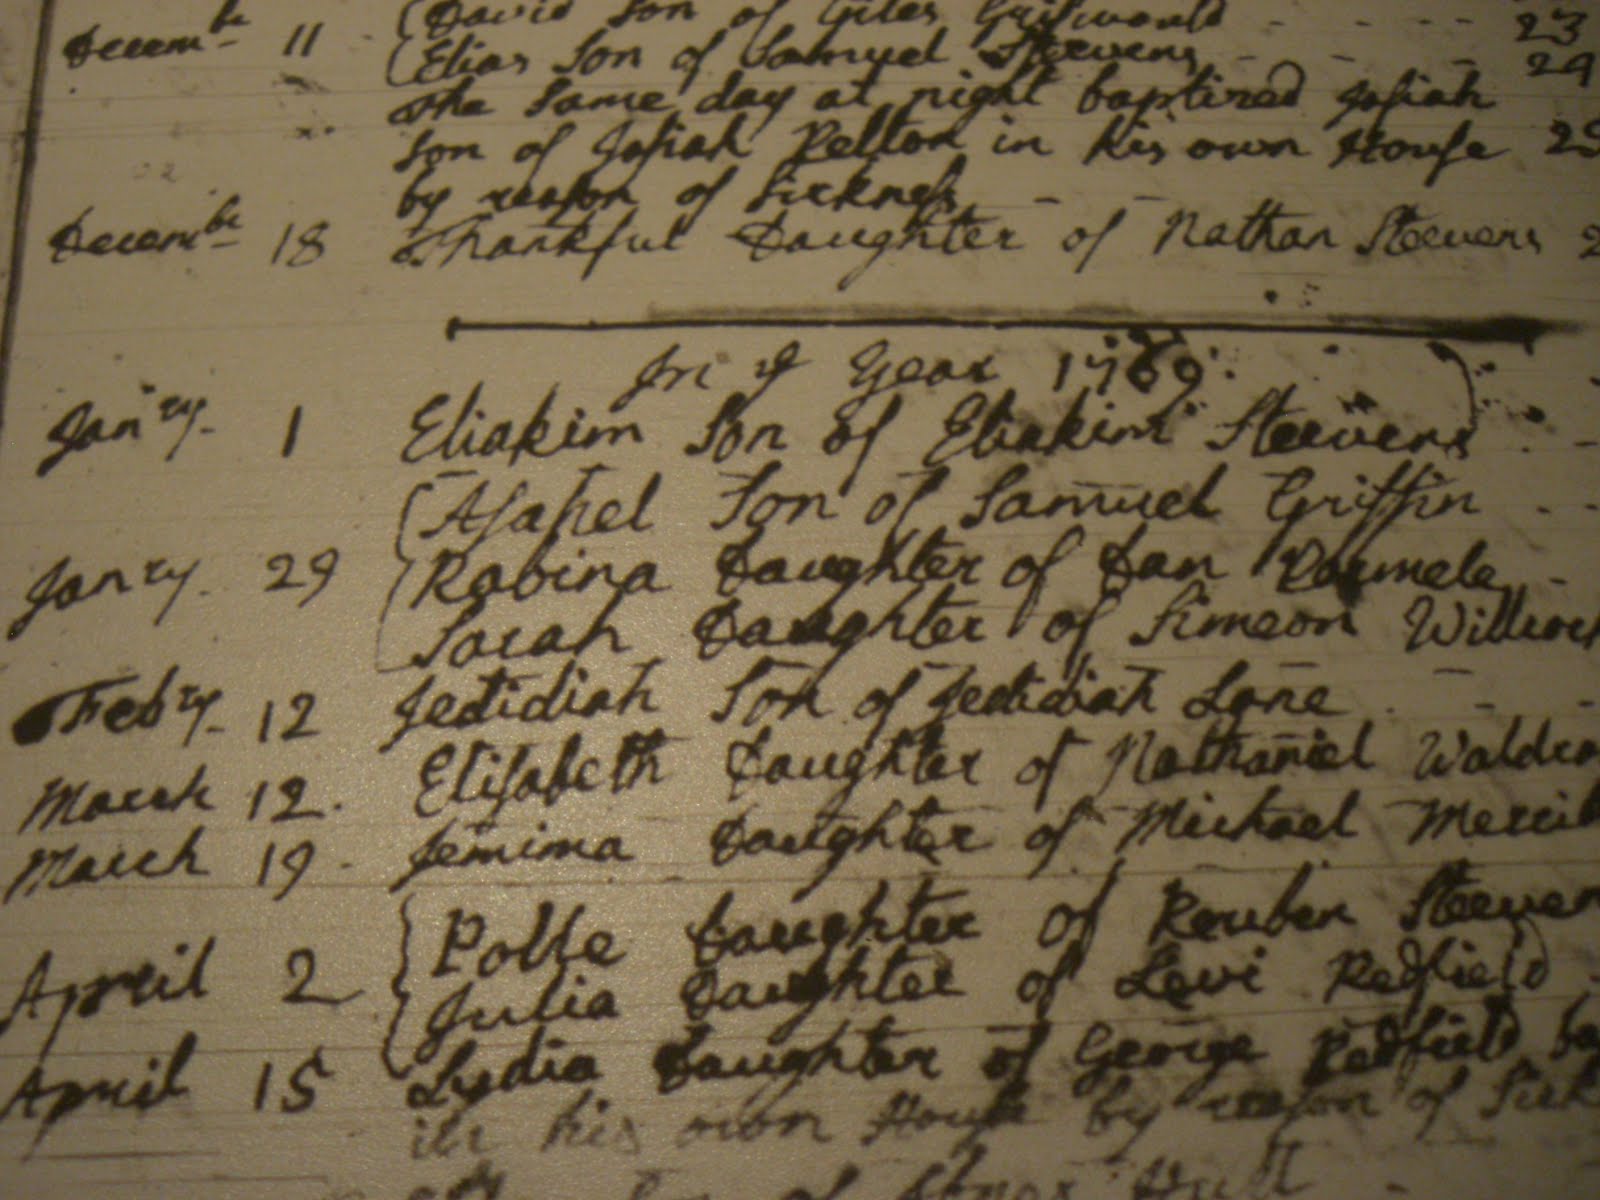 Decemb 11 David Son of Giles Griswould - - - - 23
Elias Son of Samuel Steevens - - - 24
the same day at night baptized Josiah
son of Josiah Pelton in his own House 25
by reason of Sickness - -
Decembr 18 Thankful Daughter of Nathan Steevens 2
In ye Year 1769
Janry 1 Eliakim Son of Eliakim Steevens
Asahel Son of Samuel Griffin - -
Janry 29 Rabina Daughter of Dan Parmele -
Sarah Daughter of Simeon Willcock
Febry 12 Jedidiah Son of Jedidiah Lane - -
March 12. Elisabeth Daughter of Nathaniel Waldro
March 19 - Jemima Daughter of Michael Merril
Polle Daughter of Reuben Steeven
April 2 Julia Daughter of Levi Redfield -
April 15 Lydia Daughter of George Redfield ba
in his own House by reason of Sick
of Hull